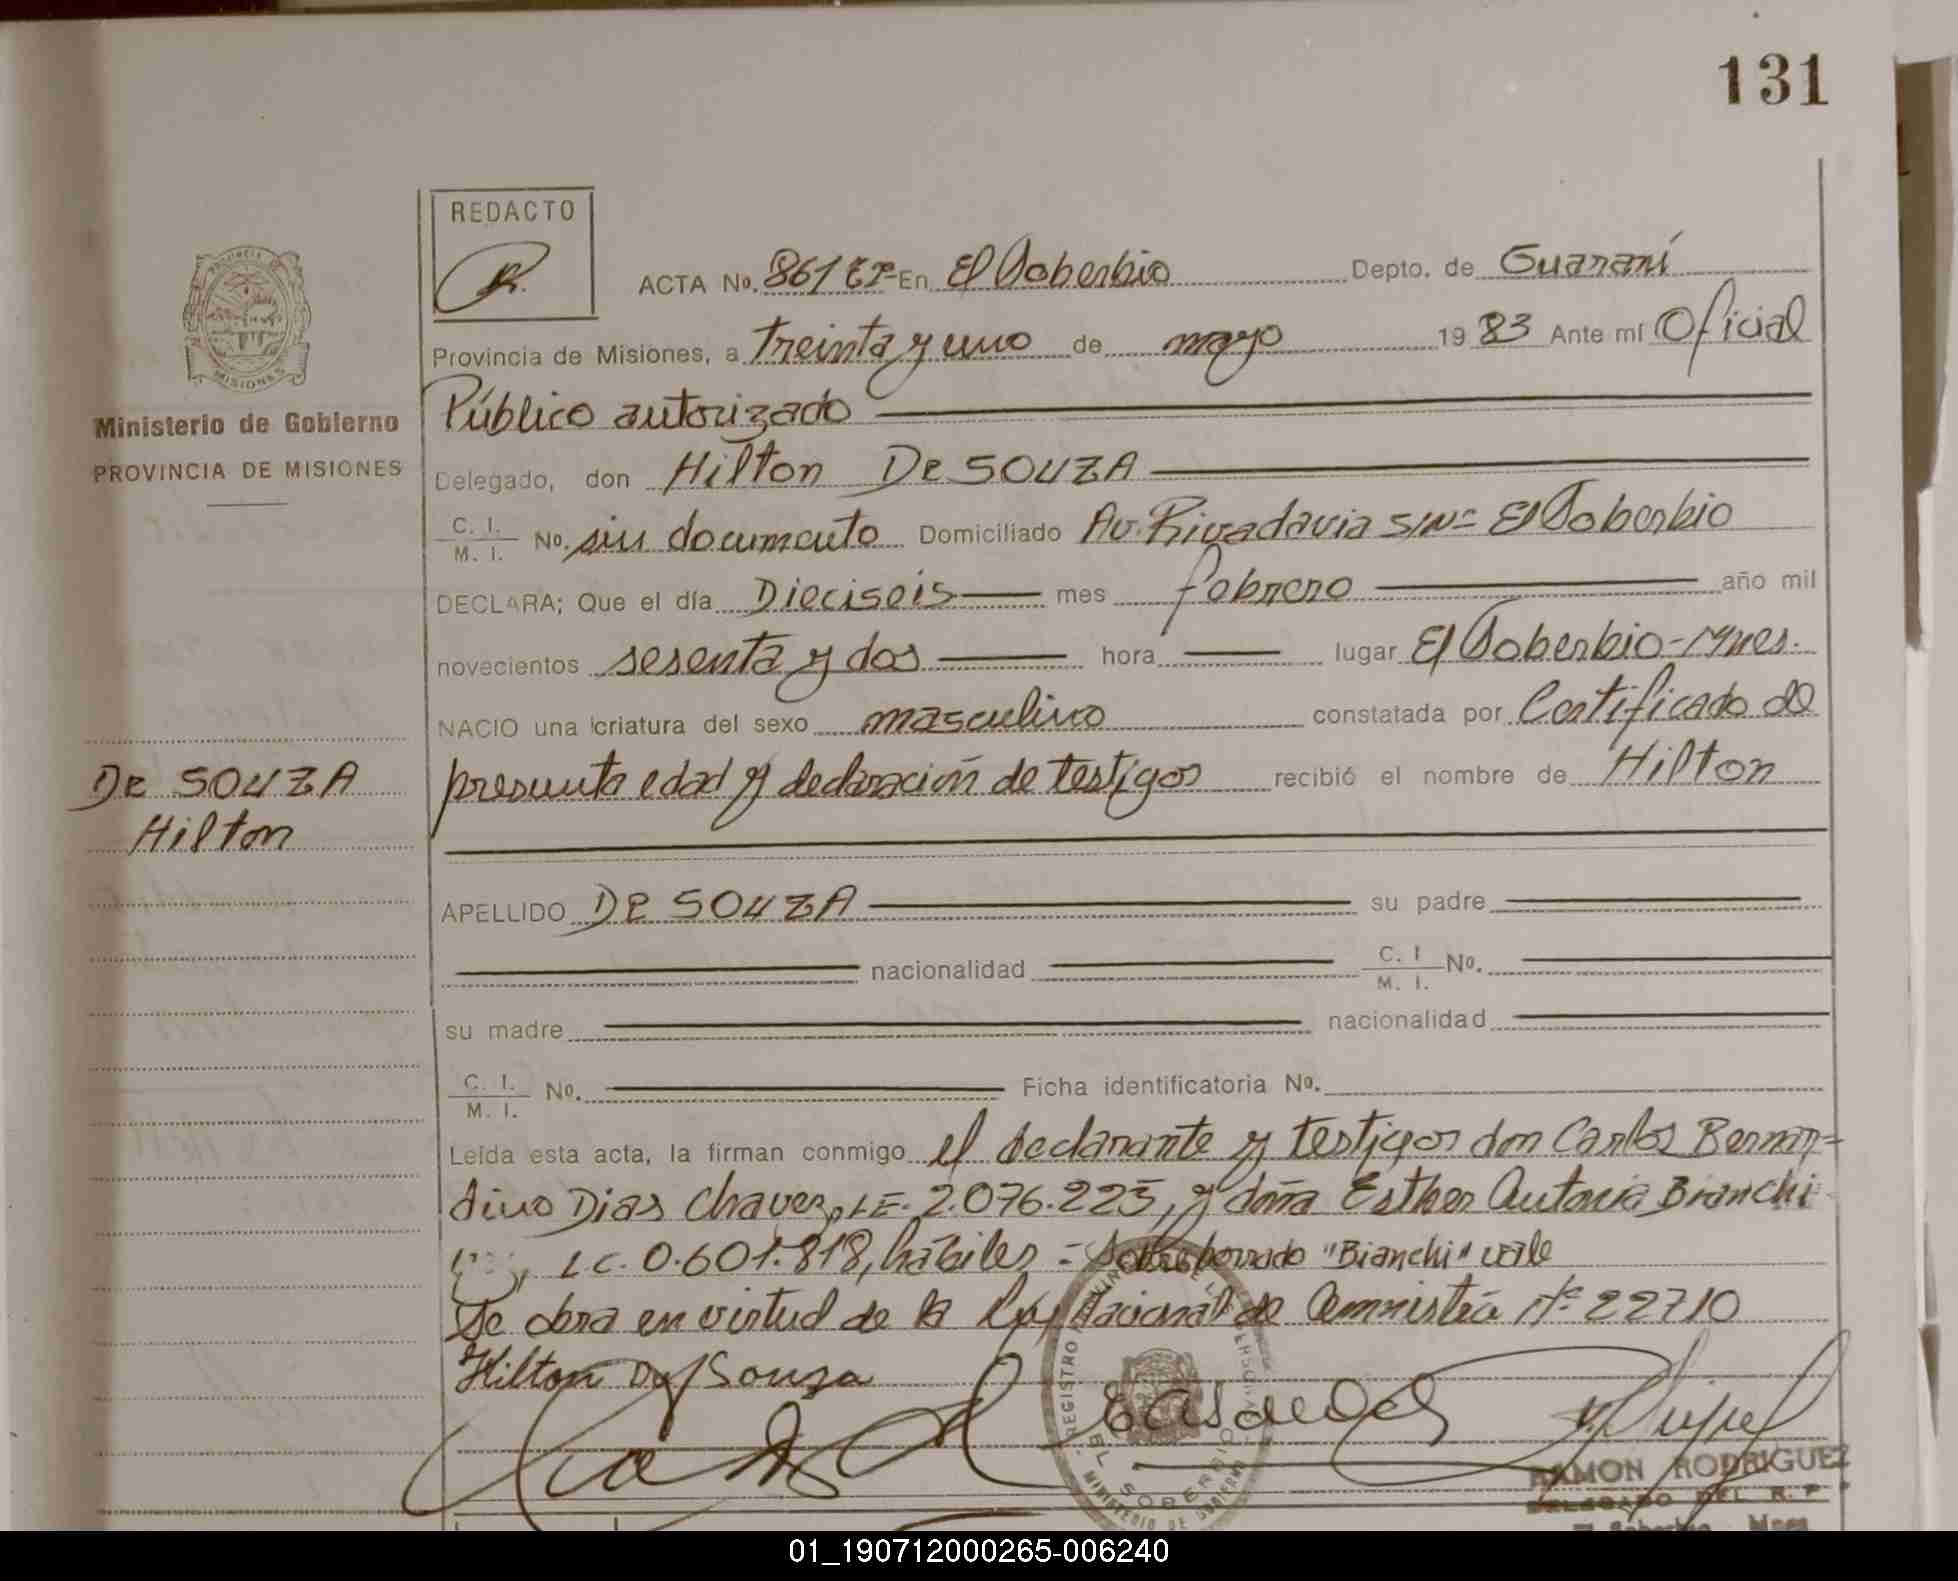 131
REDACTO
ACTA No. 861 En El Soberbio Depto. de Guaraní
Provincia de Misiones, a treinta y uno de mayo 1983 Ante mí Oficial
Público autorizado
Delegado, don Hilton De SOUZA
C. I. M. I. No. sin documento Domiciliado Av. Rivadavia S/Nº El Soberbio
DECLARA; Que el día Dieciseis mes febrero año mil
novecientos sesenta y dos hora lugar El Soberbio - Mnes.
NACIO una criatura del sexo masculino constatada por Certificado de
presunta edad y declaración de testigos recibió el nombre de Hilton
APELLIDO De SOUZA su padre
nacionalidad C. I. M. I. No.
su madre nacionalidad
C. I. M. I. No. Ficha identificatoria No.
Leída esta acta, la firman conmigo el declarante y testigos don Carlos Bernar-
dino Dias Chavez, L.E. 2.076.225, y doña Esther Antonia Bianchi
L.C. 0.601.818, hábiles = Sobreborrado "Bianchi" vale
Se obra en virtud de la Ley Nacional de Amnistía Nº 22710
Hilton De Souza
RAMON RODRIGUEZ
DELEGADO DEL R. P.
El Soberbio Mnes.
PROVINCIA DE
MISIONES
Ministerio de Gobierno
PROVINCIA DE MISIONES
De SOUZA
Hilton
REGISTRO
EL SOBERBIO
MINISTERIO DE GOBIERNO
01_190712000265-006240